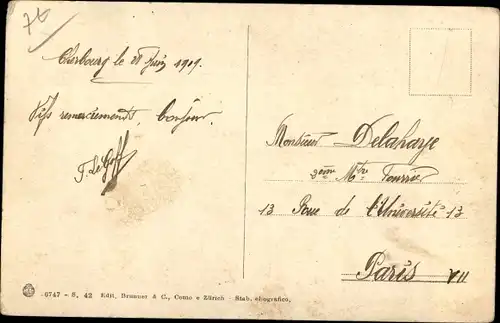 76
Cherbourg le 28 Juin 1909.
Vifs remerciements, bonjour.
F. Le Goff
Monsieur Delahaye
3ème Mtre Fourrier
13 Rue de l'Université 13
Paris VII
6747 - S. 42 Edit. Brunner & C., Como e Zürich - Stab. eliografico.